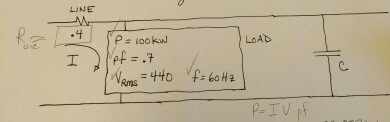 LINE
R line .4
I
P = 100kW
pf = .7
VRms = 440 f = 60Hz
LOAD
C
P = I V pf